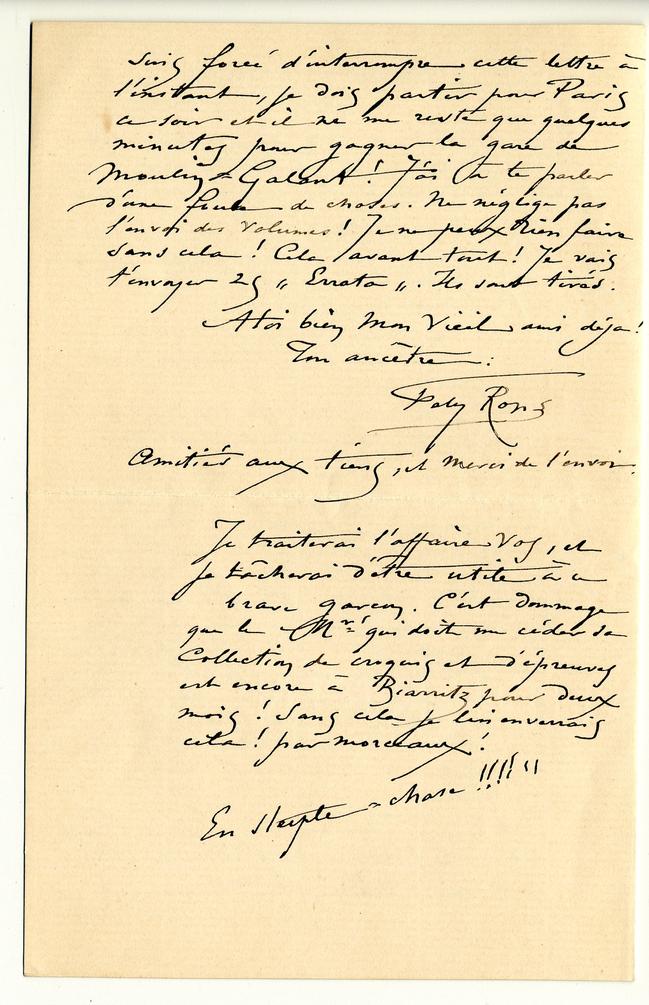 suis forcé d'interrompre cette lettre à
l'instant, je dois partir pour Paris
ce soir et il ne me reste que quelques
minutes pour gagner la gare de
Moulin-Galant ! J'ai à te parler
d'une foule de choses. Ne néglige pas
l'envoi des volumes ! Je ne peux rien faire
sans cela ! Cela avant tout ! Je vais
t'envoyer 25 „ Errata „. Ils sont tirés.
A toi bien mon vieil ami déjà !
Ton ancêtre :
Fély Rops
Amitiés aux tiens, et merci de l'envoi.
Je traiterai l'affaire Vos, et
je tâcherai d'être utile à ce
brave garçon. C'est dommage
que le Mr qui doit me céder sa
Collection de croquis et d'épreuves
est encore à Biarritz pour deux
mois ! Sans cela je lui enverrais
cela ! par morceaux !
En steeple-chase !!!!!!